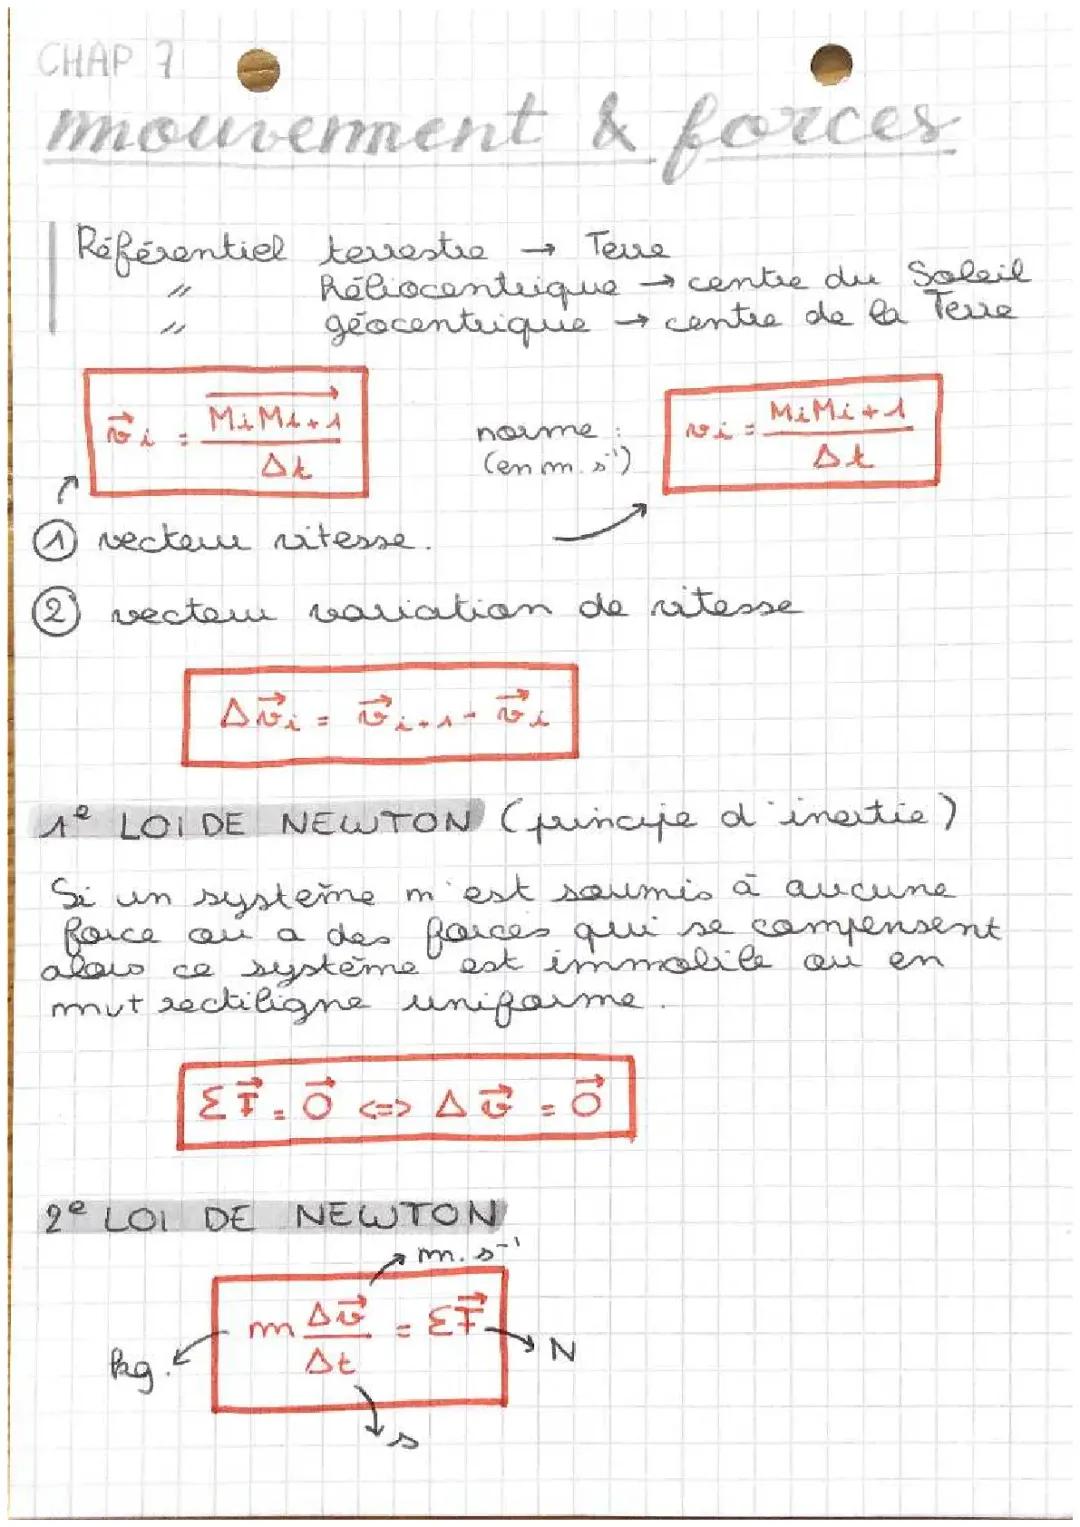 CHAP 7
mouvement & forces
Référentiel terrestre → Terre
〃 héliocentrique → centre du Soleil
〃 géocentrique → centre de la Terre
v⃗i = MiMi+1 / Δt
norme : (en m.s⁻¹)
vi = MiMi+1 / Δt
① vecteur vitesse.
② vecteur variation de vitesse
Δv⃗i = v⃗i+1 - v⃗i
1e LOI DE NEWTON (principe d'inertie)
Si un système n'est soumis à aucune
force ou a des forces qui se compensent
alors ce système est immobile ou en
mvt rectiligne uniforme.
ΣF⃗ = 0⃗ <=> Δv⃗ = 0⃗
2e LOI DE NEWTON
m.s⁻¹
m Δv⃗ / Δt = ΣF⃗
N
kg.
s